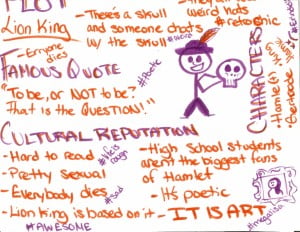 PLOT
Lion King
- Everyone
dies
- There's a skull
and someone chats
w/ the skull
#weird
weird hats
#retrochic
FAMOUS QUOTE
#Poetic
"To be, or NOT to be?
That is the QUESTION!"
CHARACTERS
- Hamlet
- Gertrude
CULTURAL REPUTATION
- Hard to read
- Pretty sexual
- Everybody dies
#sad
- Lion King is based on it
#AWESOME
- High School students
aren't the biggest fans
of Hamlet
- It's poetic
- IT IS ART